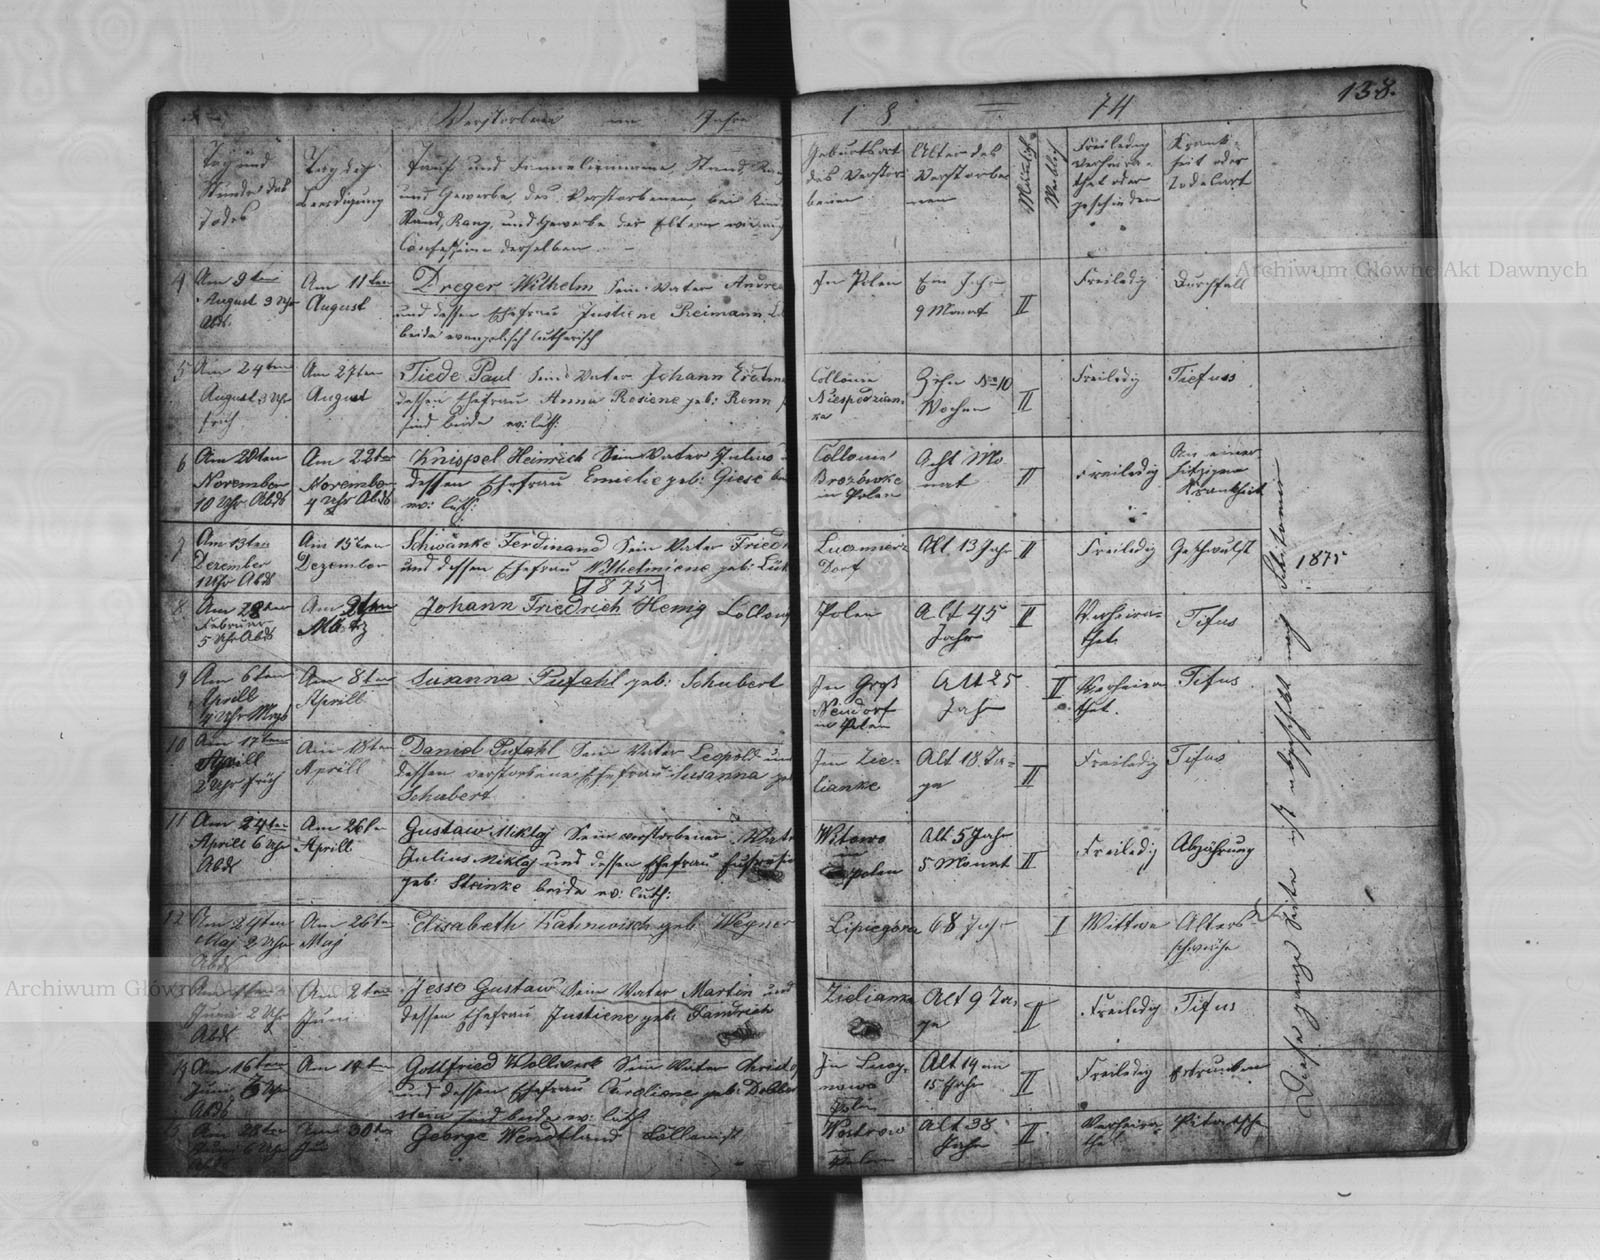 138.
Verstorbene im Jahre 1874
Tag und Stunde des Todes
Tag der Beerdigung
Tauf und Familienname, Stand, Rang
und Gewerbe des Verstorbenen, bei Kind
Stand, Rang, und Gewerbe der Eltern wie auch
Confession derselben
Geburtsort des Verstorbenen
Alter des Verstorbenen
Männlich
Weiblich
Freiledig verheirathet oder geschieden
Krankheit oder Todesart
4 Am 9ten August 3 Uhr Abds.
Am 11ten August
Dreger Wilhelm Sein Vater Andrea
und dessen Ehefrau Justiene Reimann
beide evangelisch lutherisch
In Polen
Ein Jahr 9 Monat
II
Freiledig
Durchfall
5 Am 24ten August 3 Uhr früh
Am 27ten August
Tiede Paul Sein Vater Johann Erdtma
dessen Ehefrau Anna Rosiene geb: Renn
sind beide ev: luth:
Collonie Niespodzianka
Zehn No 10 Wochen
II
Freiledig
Tiefuss
6 Am 20ten November 10 Uhr Abds
Am 22ten November 4 Uhr Abds
Knispel Heinrich Sein Vater Julius
dessen Ehefrau Emielie geb: Giese
ev: luth:
Collonie Brozówke in Polen
Acht Monat
II
Freiledig
An einer hitzigen Krankheit
7 Am 13ten Dezember 1 Uhr Abds
Am 15ten Dezember
Schwänke Ferdinand Sein Vater Friedr
und dessen Ehefrau Wilhelmiene geb: Lük
Dorf
Alt 13 Jahr
II
Freiledig
Geschwulst
1875
8. Am 28ten Februar 5 Uhr Abds
Am 2ten März
Johann Friedrich Henig
Polen
Alt 45 Jahr
II
Verheirathet
Tifus
9 Am 6ten Aprill 4 Uhr Mrgs
Am 8ten Aprill
Susanna Pufahl geb: Schubert
In Groß Neudorf in Polen
Alt 25 Jahr
II
Verheirathet.
Tifus
10 Am 17ten Aprill 2 Uhr früh
Am 18ten Aprill
Daniel Pufahl Sein Vater Leopold und
dessen verstorbene Ehefrau Susanna geb
Schubert
In Zielianke
Alt 18. Tage
II
Freiledig
Tifus
11 Am 24ten Aprill 6 Uhr Abds
Am 26te Aprill
Gustaw Miklaj Sein verstorbener Vater
Julius Miklaj und dessen Ehefrau
geb: Steinke beide ev: luth:
Witowo in Polen
Alt 5 Jahr 5 Monat
II
Freiledig
Abzährung
12 Am 24ten Maj 2 Uhr Abds
Am 26te Maj
Elisabeth geb Wegner
Lipiegóra
68 Jahr
I
Wittwe
Altersschwäche
Juni 2 Uhr Abds
Am 2ten Juni
Jesse Gustaw Sein Vater Martin und
dessen Ehefrau Justiene geb:
Zielianke
Alt 9 Tage
II
Freiledig
Tifus
14 Am 16ten Juni 6 Uhr Abds
Am 18ten
Gottfried Wollwerk Sein Vater Christo
und dessen Ehefrau Karoliene geb: Dobber
stein sind beide ev: luth
Polen
Alt 14 in 15 Jahr
II
Freiledig
Ertrunken
15 Am 28ten Juni 6 Uhr Abds
Am 30ten Jun
George Wendtland Collonist
Wostrow in Polen
Alt 38 Jahr
II
Verheirathet
Diese ganze Seite ist abgeschickt nach
1875
Archiwum Główne Akt Dawnych
Archiwum Główne Akt Dawnych